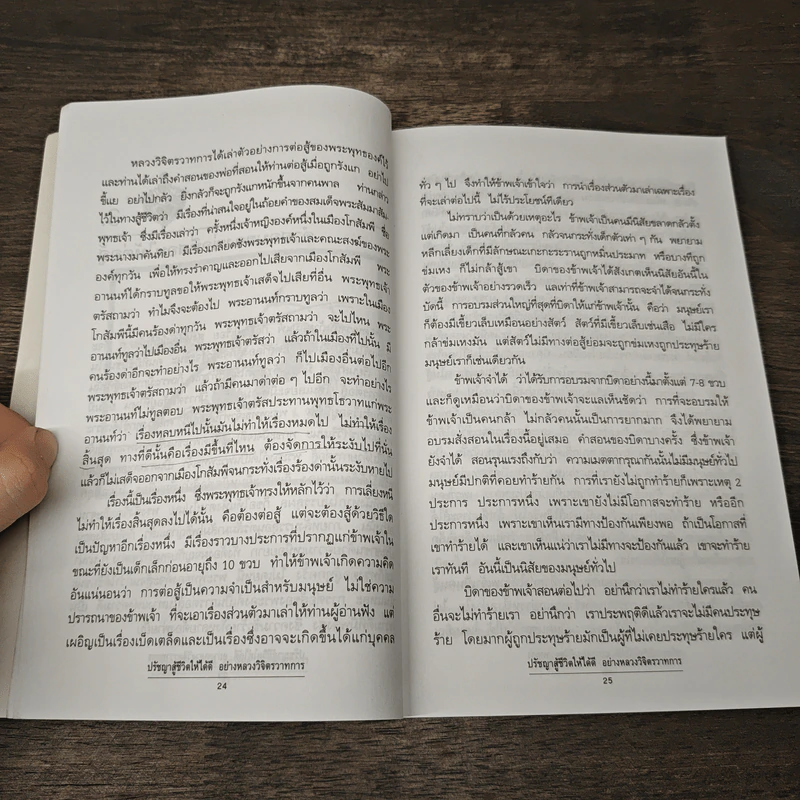 หลวงวิจิตรวาทการได้เล่าตัวอย่างการต่อสู้ของพระพุทธองค์ไว้
และท่านได้เล่าถึงคำสอนของพ่อที่สอนให้ท่านต่อสู้เมื่อถูกรังแก อย่าไป
ขี้แย อย่าไปกลัว ยิ่งกลัวก็จะถูกรังแกหนักขึ้นจากคนพาล ท่านกล่าว
ไว้ในทางสู้ชีวิตว่า มีเรื่องที่น่าสนใจอยู่ในถ้อยคำของสมเด็จพระสัมมาสัม
พุทธเจ้า ซึ่งมีเรื่องเล่าว่า ครั้งหนึ่งเจ้าหญิงองค์หนึ่งในเมืองโกสัมพี ชื่อ
พระนางมาคันทิยา มีเรื่องเกลียดชังพระพุทธเจ้าและคณะสงฆ์ของพระ
องค์ทุกวัน เพื่อให้ทรงรำคาญและออกไปเสียจากเมืองโกสัมพี พระ
อานนท์ได้กราบทูลขอให้พระพุทธเจ้าเสด็จไปเสียที่อื่น พระพุทธเจ้า
ตรัสถามว่า ทำไมจึงจะต้องไป พระอานนท์กราบทูลว่า เพราะในเมือง
โกสัมพีนี้มีคนร้องด่าทุกวัน พระพุทธเจ้าตรัสถามว่า จะไปไหน พระ
อานนท์ทูลว่าไปเมืองอื่น พระพุทธเจ้าตรัสว่า แล้วถ้าในเมืองที่ไปนั้น มี
คนร้องด่าอีกจะทำอย่างไร พระอานนท์ทูลว่า ก็ไปเมืองอื่นต่อไปอีก
พระพุทธเจ้าตรัสถามว่า แล้วถ้ามีคนมาด่าต่อ ๆ ไปอีก จะทำอย่างไร
พระอานนท์ไม่ทูลตอบ พระพุทธเจ้าตรัสประทานพุทธโธวาทแก่พระ
อานนท์ว่า เรื่องหลบหนีไปนั้นมันไม่ทำให้เรื่องหมดไป ไม่ทำให้เรื่อง
สิ้นสุด ทางที่ดีนั้นคือเรื่องมีขึ้นที่ไหน ต้องจัดการให้ระงับไปที่นั่น
แล้วก็ไม่เสด็จออกจากเมืองโกสัมพีจนกระทั่งเรื่องร้องด่านั้นระงับหายไป
เรื่องนี้เป็นเรื่องหนึ่ง ซึ่งพระพุทธเจ้าทรงให้หลักไว้ว่า การเลี่ยงหนี
ไม่ทำให้เรื่องสิ้นสุดลงไปได้นั้น คือต้องต่อสู้ แต่จะต้องสู้ด้วยวิธีใด
เป็นปัญหาอีกเรื่องหนึ่ง มีเรื่องราวบางประการที่ปรากฏแก่ข้าพเจ้าใน
ขณะที่ยังเป็นเด็กเล็กก่อนอายุถึง 10 ขวบ ทำให้ข้าพเจ้าเกิดความคิด
อันแน่นอนว่า การต่อสู้เป็นความจำเป็นสำหรับมนุษย์ ไม่ใช่ความ
ปรารถนาของข้าพเจ้า ที่จะเอาเรื่องส่วนตัวมาเล่าให้ท่านผู้อ่านฟัง แต่
เผอิญเป็นเรื่องเบ็ดเตล็ดและเป็นเรื่องซึ่งอาจจะเกิดขึ้นได้แก่บุคคล
ปรัชญาสู้ชีวิตให้ได้ดี อย่างหลวงวิจิตรวาทการ
24
ทั่ว ๆ ไป จึงทำให้ข้าพเจ้าเข้าใจว่า การนำเรื่องส่วนตัวมาเล่าเฉพาะเรื่อง
ที่จะเล่าต่อไปนี้ ไม่ไร้ประโยชน์ทีเดียว
ไม่ทราบว่าเป็นด้วยเหตุอะไร ข้าพเจ้าเป็นคนมีนิสัยขลาดกลัวตั้ง
แต่เกิดมา เป็นคนที่กลัวคน กลัวจนกระทั่งเด็กตัวเท่า ๆ กัน พยายาม
หลีกเลี่ยงเด็กที่มีลักษณะเกะกะระรานถูกหมิ่นประมาท หรือบางทีถูก
ข่มเหง ก็ไม่กล้าสู้เขา บิดาของข้าพเจ้าได้สังเกตเห็นนิสัยอันนี้ใน
ตัวของข้าพเจ้าอย่างรวดเร็ว และเท่าที่ข้าพเจ้าสามารถจะจำได้จนกระทั่ง
บัดนี้ การอบรมส่วนใหญ่ที่สุดที่บิดาให้แก่ข้าพเจ้านั้น คือว่า มนุษย์เรา
ก็ต้องมีเขี้ยวเล็บเหมือนอย่างสัตว์ สัตว์ที่มีเขี้ยวเล็บเช่นเสือ ไม่มีใคร
กล้าข่มเหงมัน แต่สัตว์ไม่มีทางต่อสู้ย่อมจะถูกข่มเหงถูกประทุษร้าย
มนุษย์เราก็เช่นเดียวกัน
ข้าพเจ้าจำได้ ว่าได้รับการอบรมจากบิดาอย่างนี้มาตั้งแต่ 7-8 ขวบ
และก็ดูเหมือนว่าบิดาของข้าพเจ้าจะแลเห็นชัดว่า การที่จะอบรมให้
ข้าพเจ้าเป็นคนกล้า ไม่กลัวคนนั้นเป็นการยากมาก จึงได้พยายาม
อบรมสั่งสอนในเรื่องนี้อยู่เสมอ คำสอนของบิดาบางครั้ง ซึ่งข้าพเจ้า
ยังจำได้ สอนรุนแรงถึงกับว่า ความเมตตากรุณากันนั้นไม่มีมนุษย์ทั่วไป
มนุษย์มีปกติที่คอยทำร้ายกัน การที่เรายังไม่ถูกทำร้ายก็เพราะเหตุ 2
ประการ ประการหนึ่ง เพราะเขายังไม่มีโอกาสจะทำร้าย หรืออีก
ประการหนึ่ง เพราะเขาเห็นเรามีทางป้องกันเพียงพอ ถ้าเป็นโอกาสที่
เขาทำร้ายได้ และเขาเห็นแน่ว่าเราไม่มีทางจะป้องกันแล้ว เขาจะทำร้าย
เราทันที อันนี้เป็นนิสัยของมนุษย์ทั่วไป
บิดาของข้าพเจ้าสอนต่อไปว่า อย่านึกว่าเราไม่ทำร้ายใครแล้ว คน
อื่นจะไม่ทำร้ายเรา อย่านึกว่า เราประพฤติดีแล้วเราจะไม่มีคนประทุษ
ร้าย โดยมากผู้ถูกประทุษร้ายมักเป็นผู้ที่ไม่เคยประทุษร้ายใคร แต่ผู้
ปรัชญาสู้ชีวิตให้ได้ดี อย่างหลวงวิจิตรวาทการ
25